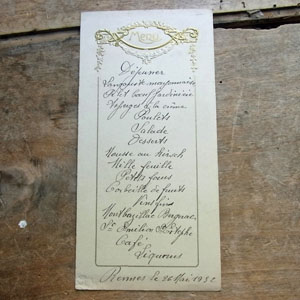 Menu
Déjeuner
Langouste mayonnaise
Filet bœuf jardinière
Asperges à la crème
Poulets
Salade
Desserts
Mousse au Kirsch
Mille feuille
Petits fours
Corbeille de fruits
Vins fins
Montbazillac Bergerac
St Emilion
Café
Liqueurs
Rennes le 26 Mai 1932